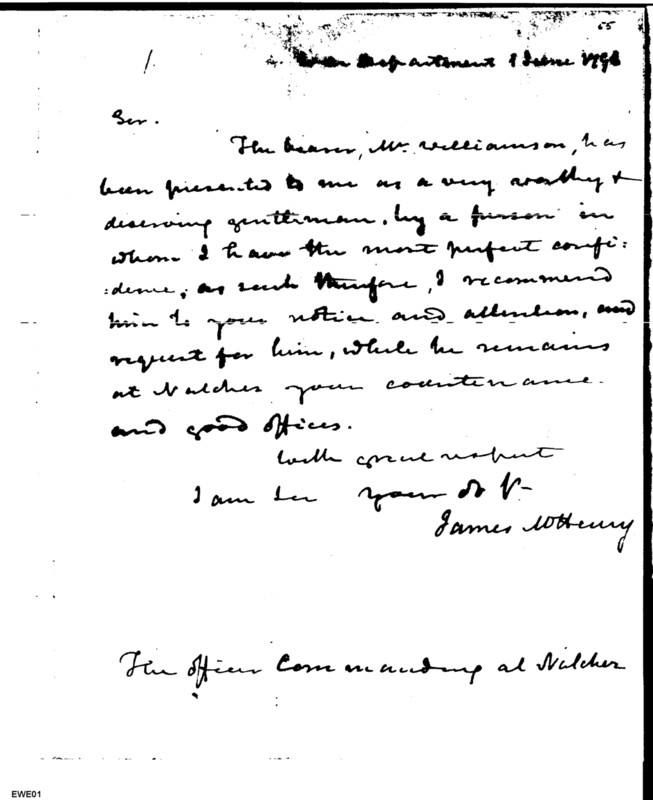 55
War Department 1 June 1798
Sir.
The bearer, Mr. Williamson, has
been presented to me as a very worthy &
deserving gentleman, by a person in
whom I have the most perfect confi:
:dence; as such therefore, I recommend
him to your notice and attention, and
request for him, while he remains
at Natches your countenance
and good offices.
With great respect
I am Sir your Ob St
James McHenry
The officer Commanding at Natches
EWE01